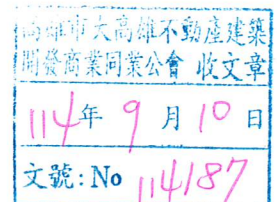 高雄市大高雄不動產建築
開發商業同業公會 收文章
114年 9月 10日
文號:No 114187